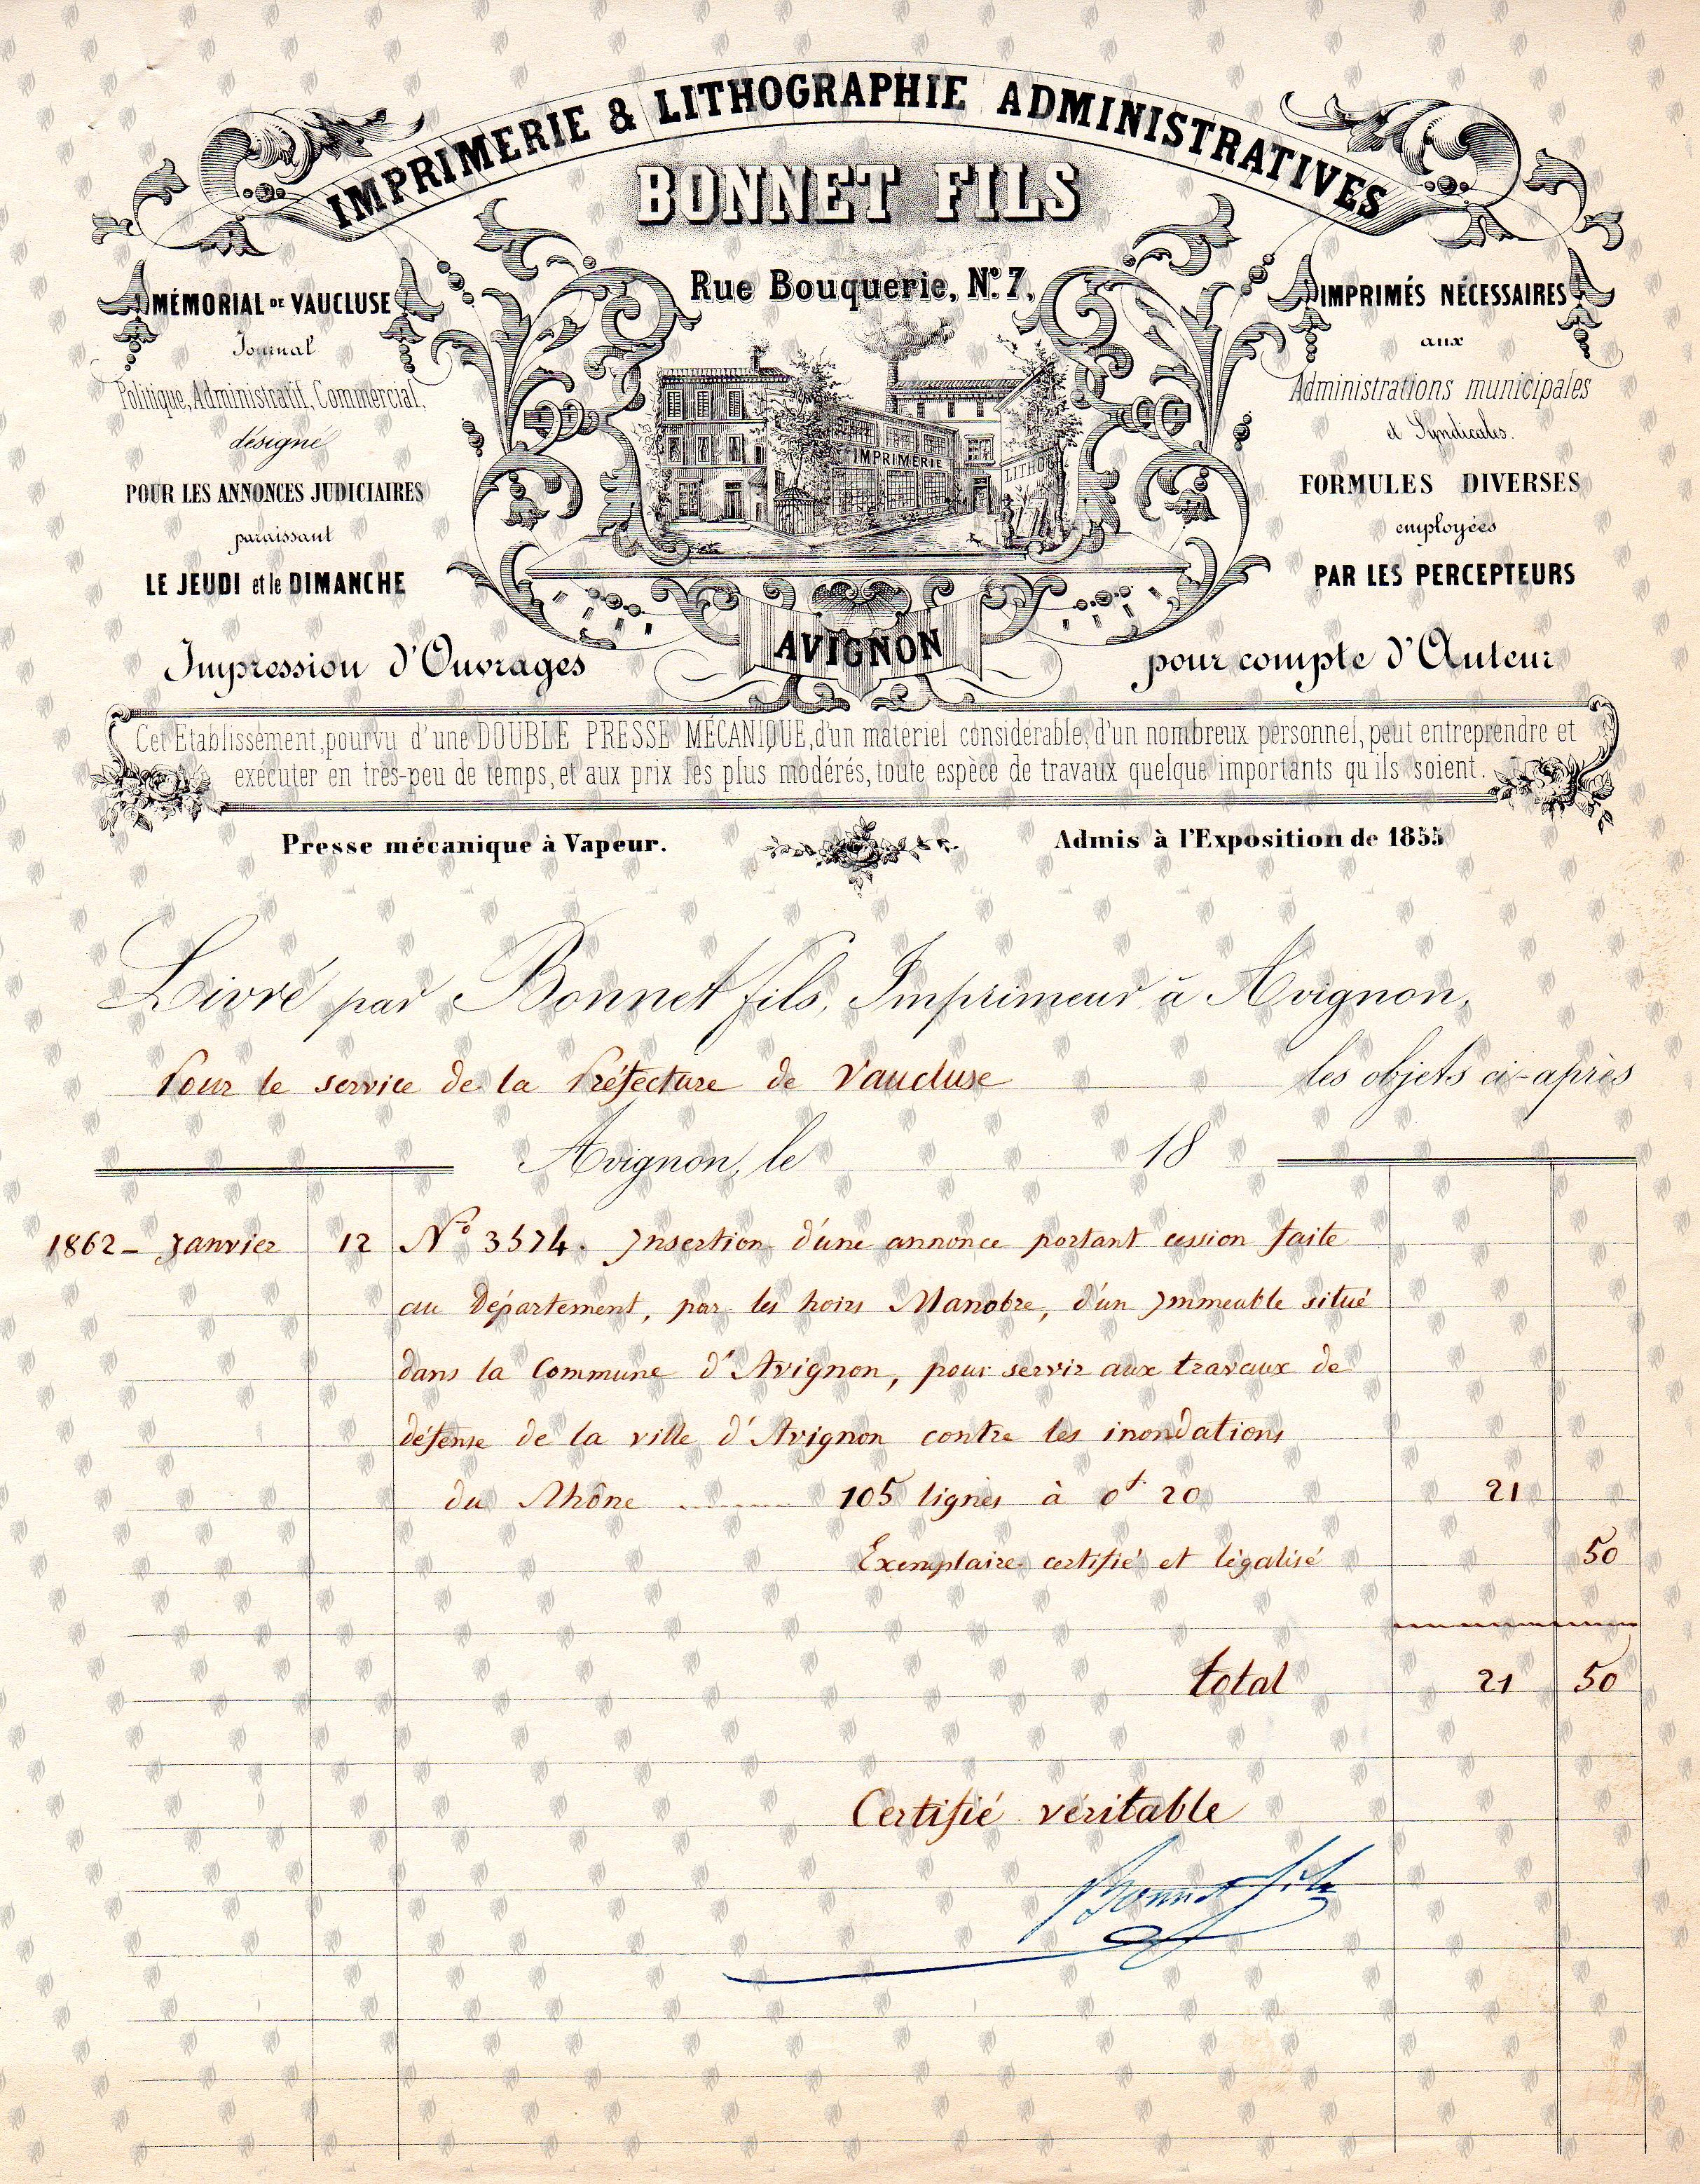 IMPRIMERIE & LITHOGRAPHIE ADMINISTRATIVES
BONNET FILS
Rue Bouquerie, Nº 7,
MÉMORIAL DE VAUCLUSE
Journal
Politique, Administratif, Commercial,
désigné
POUR LES ANNONCES JUDICIAIRES
paraissant
LE JEUDI et le DIMANCHE
IMPRIMÉS NÉCESSAIRES
aux
Administrations municipales
et Syndicales.
FORMULES DIVERSES
employées
PAR LES PERCEPTEURS
IMPRIMERIE
LITHO
AVIGNON
Impression d'Ouvrages pour compte d'Auteur
Cet Etablissement, pourvu d'une DOUBLE PRESSE MÉCANIQUE, d'un matériel considérable, d'un nombreux personnel, peut entreprendre et
exécuter en très-peu de temps, et aux prix les plus modérés, toute espèce de travaux quelque importants qu'ils soient.
Presse mécanique à Vapeur. Admis à l'Exposition de 1855
Livré par Bonnet fils, Imprimeur à Avignon,
Pour le service de la Préfecture de Vaucluse les objets ci-après
Avignon, le 18
1862 - Janvier 12 Nº 3574. Insertion d'une annonce portant cession faite
au Département, par les hoirs Manobre, d'un Immeuble situé
dans la Commune d'Avignon, pour servir aux travaux de
défense de la ville d'Avignon contre les inondations
du Rhône ........ 105 lignes à 0f 20 21
Exemplaire certifié et légalisé 50
total 21 50
Certifié véritable
Bonnet fils